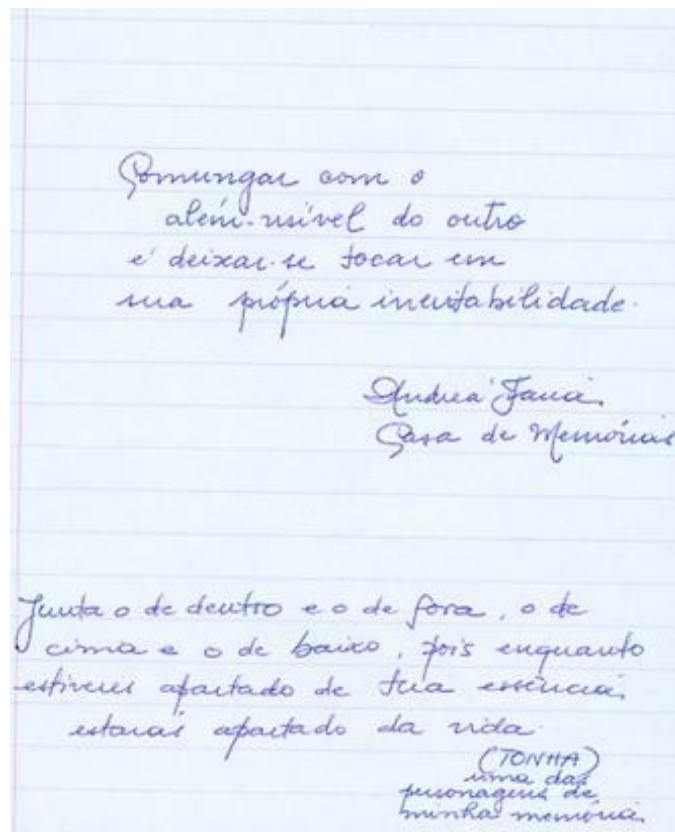 Comungar com o
além-visível do outro
é deixar-se tocar em
sua própria inevitabilidade.
Andréa Faria.
Casa de Memórias
Junta o de dentro e o de fora, o de
cima e o de baixo, pois enquanto
estiveres apartado de tua essência,
estarás apartado da vida.
(TONHA)
uma das
personagens de
minha memória.